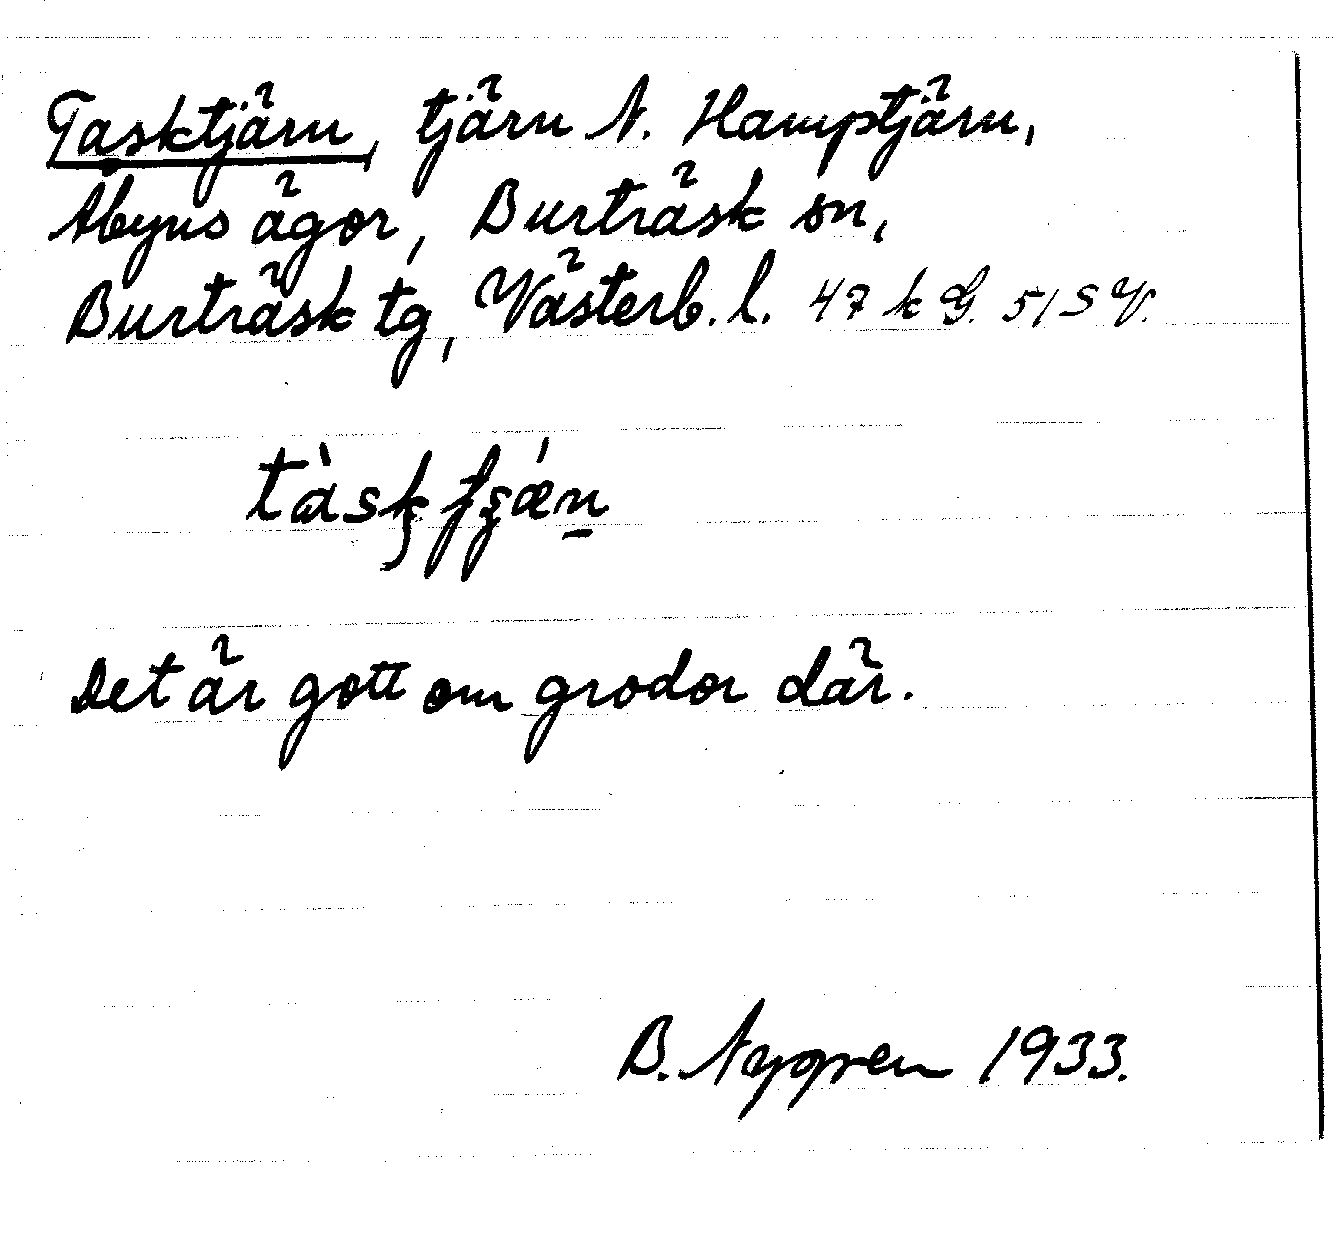 Tasktjärn, tjärn N. Hamptjärn,
Åbyns ägor, Burträsk sn,
Burträsk tg, Västerb. l. 47 k G. 51 S V.
Det är gott om grodor där.
B. Nygren 1933.